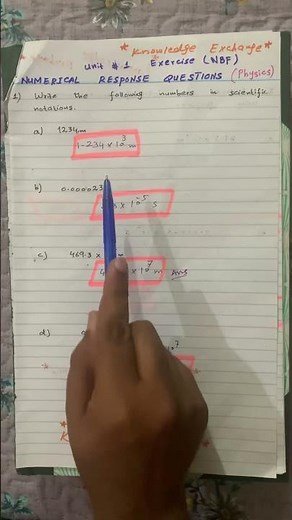 *Knowledge Exchange*
Unit # 1 Exercise (NBF)
NUMERICAL RESPONSE QUESTIONS (Physics)
1) Write the following numbers in scientific
notations.
a) 1234m
1.234 x 10³ m
b) 0.000023
x 10⁻⁵ s
c) 469.3 x
x 10⁷ m Ans
d)